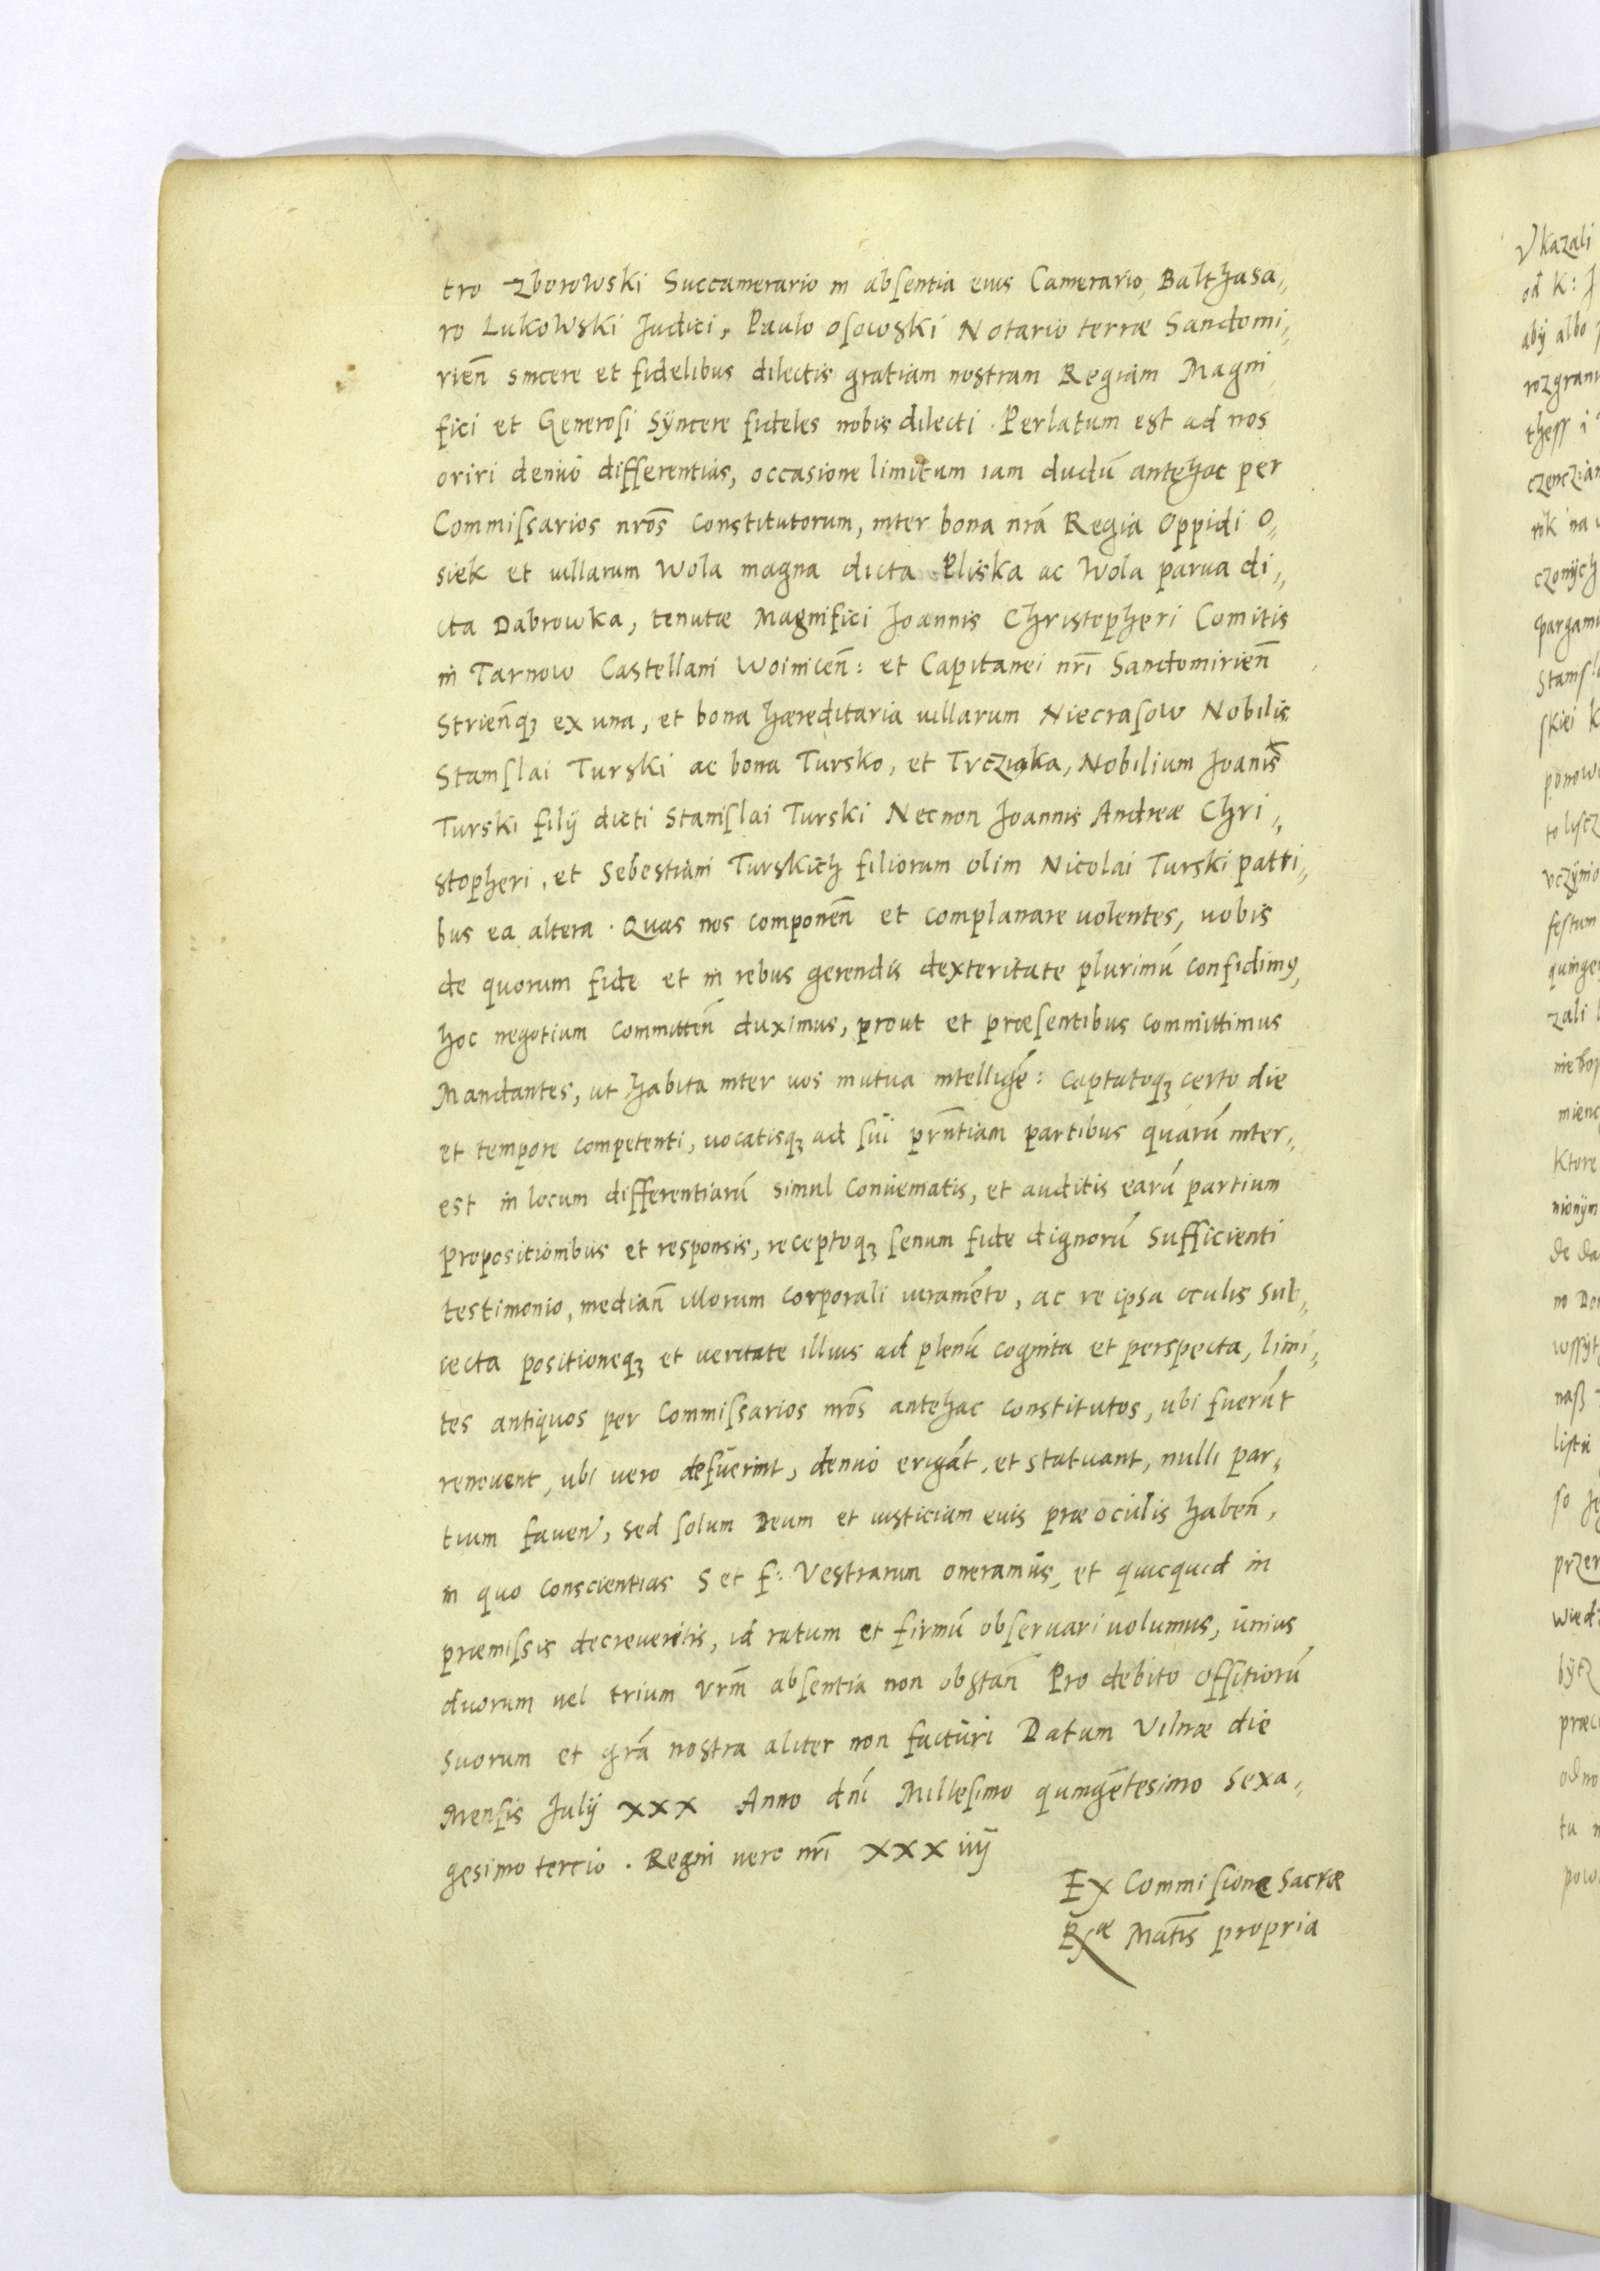 tro Zborowski Succamerario in absentia eius Camerario, Balthasa,,
ro Lukowski Judici, Paulo Osowski Notario terræ Sandomi,,
rien̄ sincere et fidelibus dilectis gratiam nostram Regiam Magni
fici et Generosi Sÿncere fideles nobis dilecti. Perlatum est ad nos
oriri denuo differentias, occasione limitum iam dudū antehac per
Commissarios nr̄os constitutorum, inter bona nrā Regia Oppidi O,,
siek et uillarum Wola magna dicta Pliska ac Wola parua di,,
cta Dabrowka, tenutæ Magnifici Joannis Christopheri Comitis
in Tarnow Castellani Woinicen̄: et Capitanei nrī Sandomirien̄
Strien̄q3 ex una, et bona hæreditaria uillarum Niecrasow Nobilis
Stanislai Turski ac bona Tursko, et Trczianka, Nobilium Joanis
Turski filij dicti Stanislai Turski Necnon Joannis Andreæ Chri,,
stopheri, et Sebestiani Turskich filiorum olim Nicolai Turski patri,,
bus ea altera. Quas nos componen̄ et complanare uolentes, uobis
de quorum fide et in rebus gerendis dexteritate plurimū confidimꝰ,
hoc negotium committen̄ duximus, prout et præsentibus committimus
Mandantes, ut habita inter uos mutua intelligē: captatoq3 certo die
et tempore competenti, uocatisq3 ad sui prn̄tiam partibus quarū inter,,
est in locum differentiarū simul conueniatis, et auditis earū partium
propositionibus et responsis, receptoq3 senum fide dignorū sufficienti
testimonio, median̄ illorum corporali iuramēto, ac re ipsa oculis sub,,
iecta positioneq3 et ueritate illius ad plenū cognita et perspecta, limi,,
tes antiquos per Commissarios nr̄os antehac constitutos, ubi fuerūt
renouent, ubi uero defuerint, denuo erigāt, et statuant, nulli par,,
tium fauen̄, sed solum Deum et iusticiam euis præ oculis haben̄,
in quo conscientias S et f: Vestrarum oneramus, et quicquid in
præmissis decreueritis, id ratum et firmū obseruari uolumus, unius
duorum uel trium Vrm̄ absentia non obstan̄ Pro debito officiorū
suorum et grā nostra aliter non facturi Datum Vilnæ die
Mensis Julij XXX Anno dnī Millesimo quingētesimo Sexa,,
gesimo tercio. Regni uero nrī XXXiiij
Ex Commisione Sacræ
Rꝫæ Matīs propria